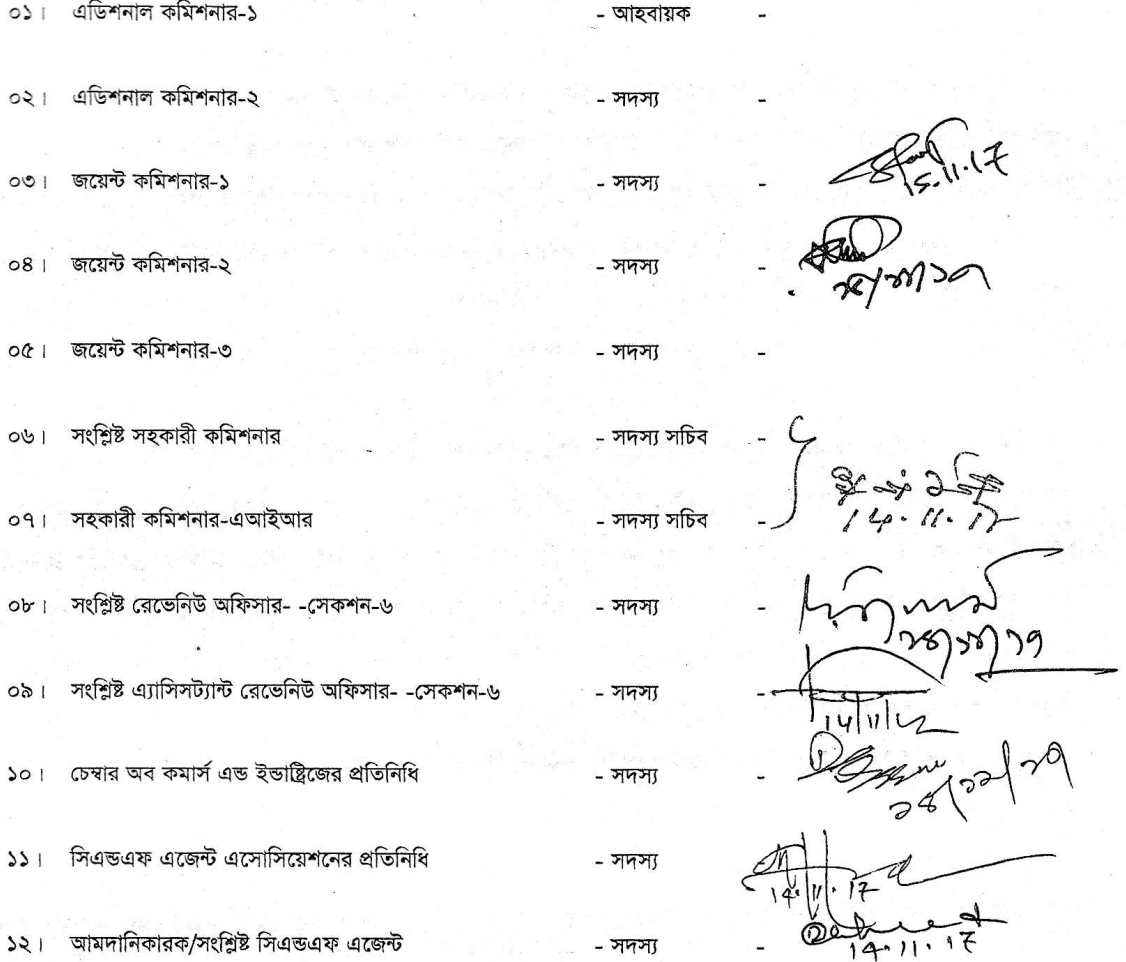 ০১। এডিশনাল কমিশনার-১ - আহবায়ক -
০২। এডিশনাল কমিশনার-২ - সদস্য -
০৩। জয়েন্ট কমিশনার-১ - সদস্য -
15.11.17
০৪। জয়েন্ট কমিশনার-২ - সদস্য -
০৫। জয়েন্ট কমিশনার-৩ - সদস্য -
০৬। সংশ্লিষ্ট সহকারী কমিশনার - সদস্য সচিব -
০৭। সহকারী কমিশনার-এআইআর - সদস্য সচিব -
14.11.17
০৮। সংশ্লিষ্ট রেভেনিউ অফিসার- -সেকশন-৬ - সদস্য -
১৪/১১/১৭
০৯। সংশ্লিষ্ট এ্যাসিসট্যান্ট রেভেনিউ অফিসার- -সেকশন-৬ - সদস্য -
14/11/17
১০। চেম্বার অব কমার্স এন্ড ইন্ডাষ্ট্রিজের প্রতিনিধি - সদস্য -
১৪/১১/১৭
১১। সিএন্ডএফ এজেন্ট এসোসিয়েশনের প্রতিনিধি - সদস্য
14.11.17
১২। আমদানিকারক/সংশ্লিষ্ট সিএন্ডএফ এজেন্ট - সদস্য -
14.11.17